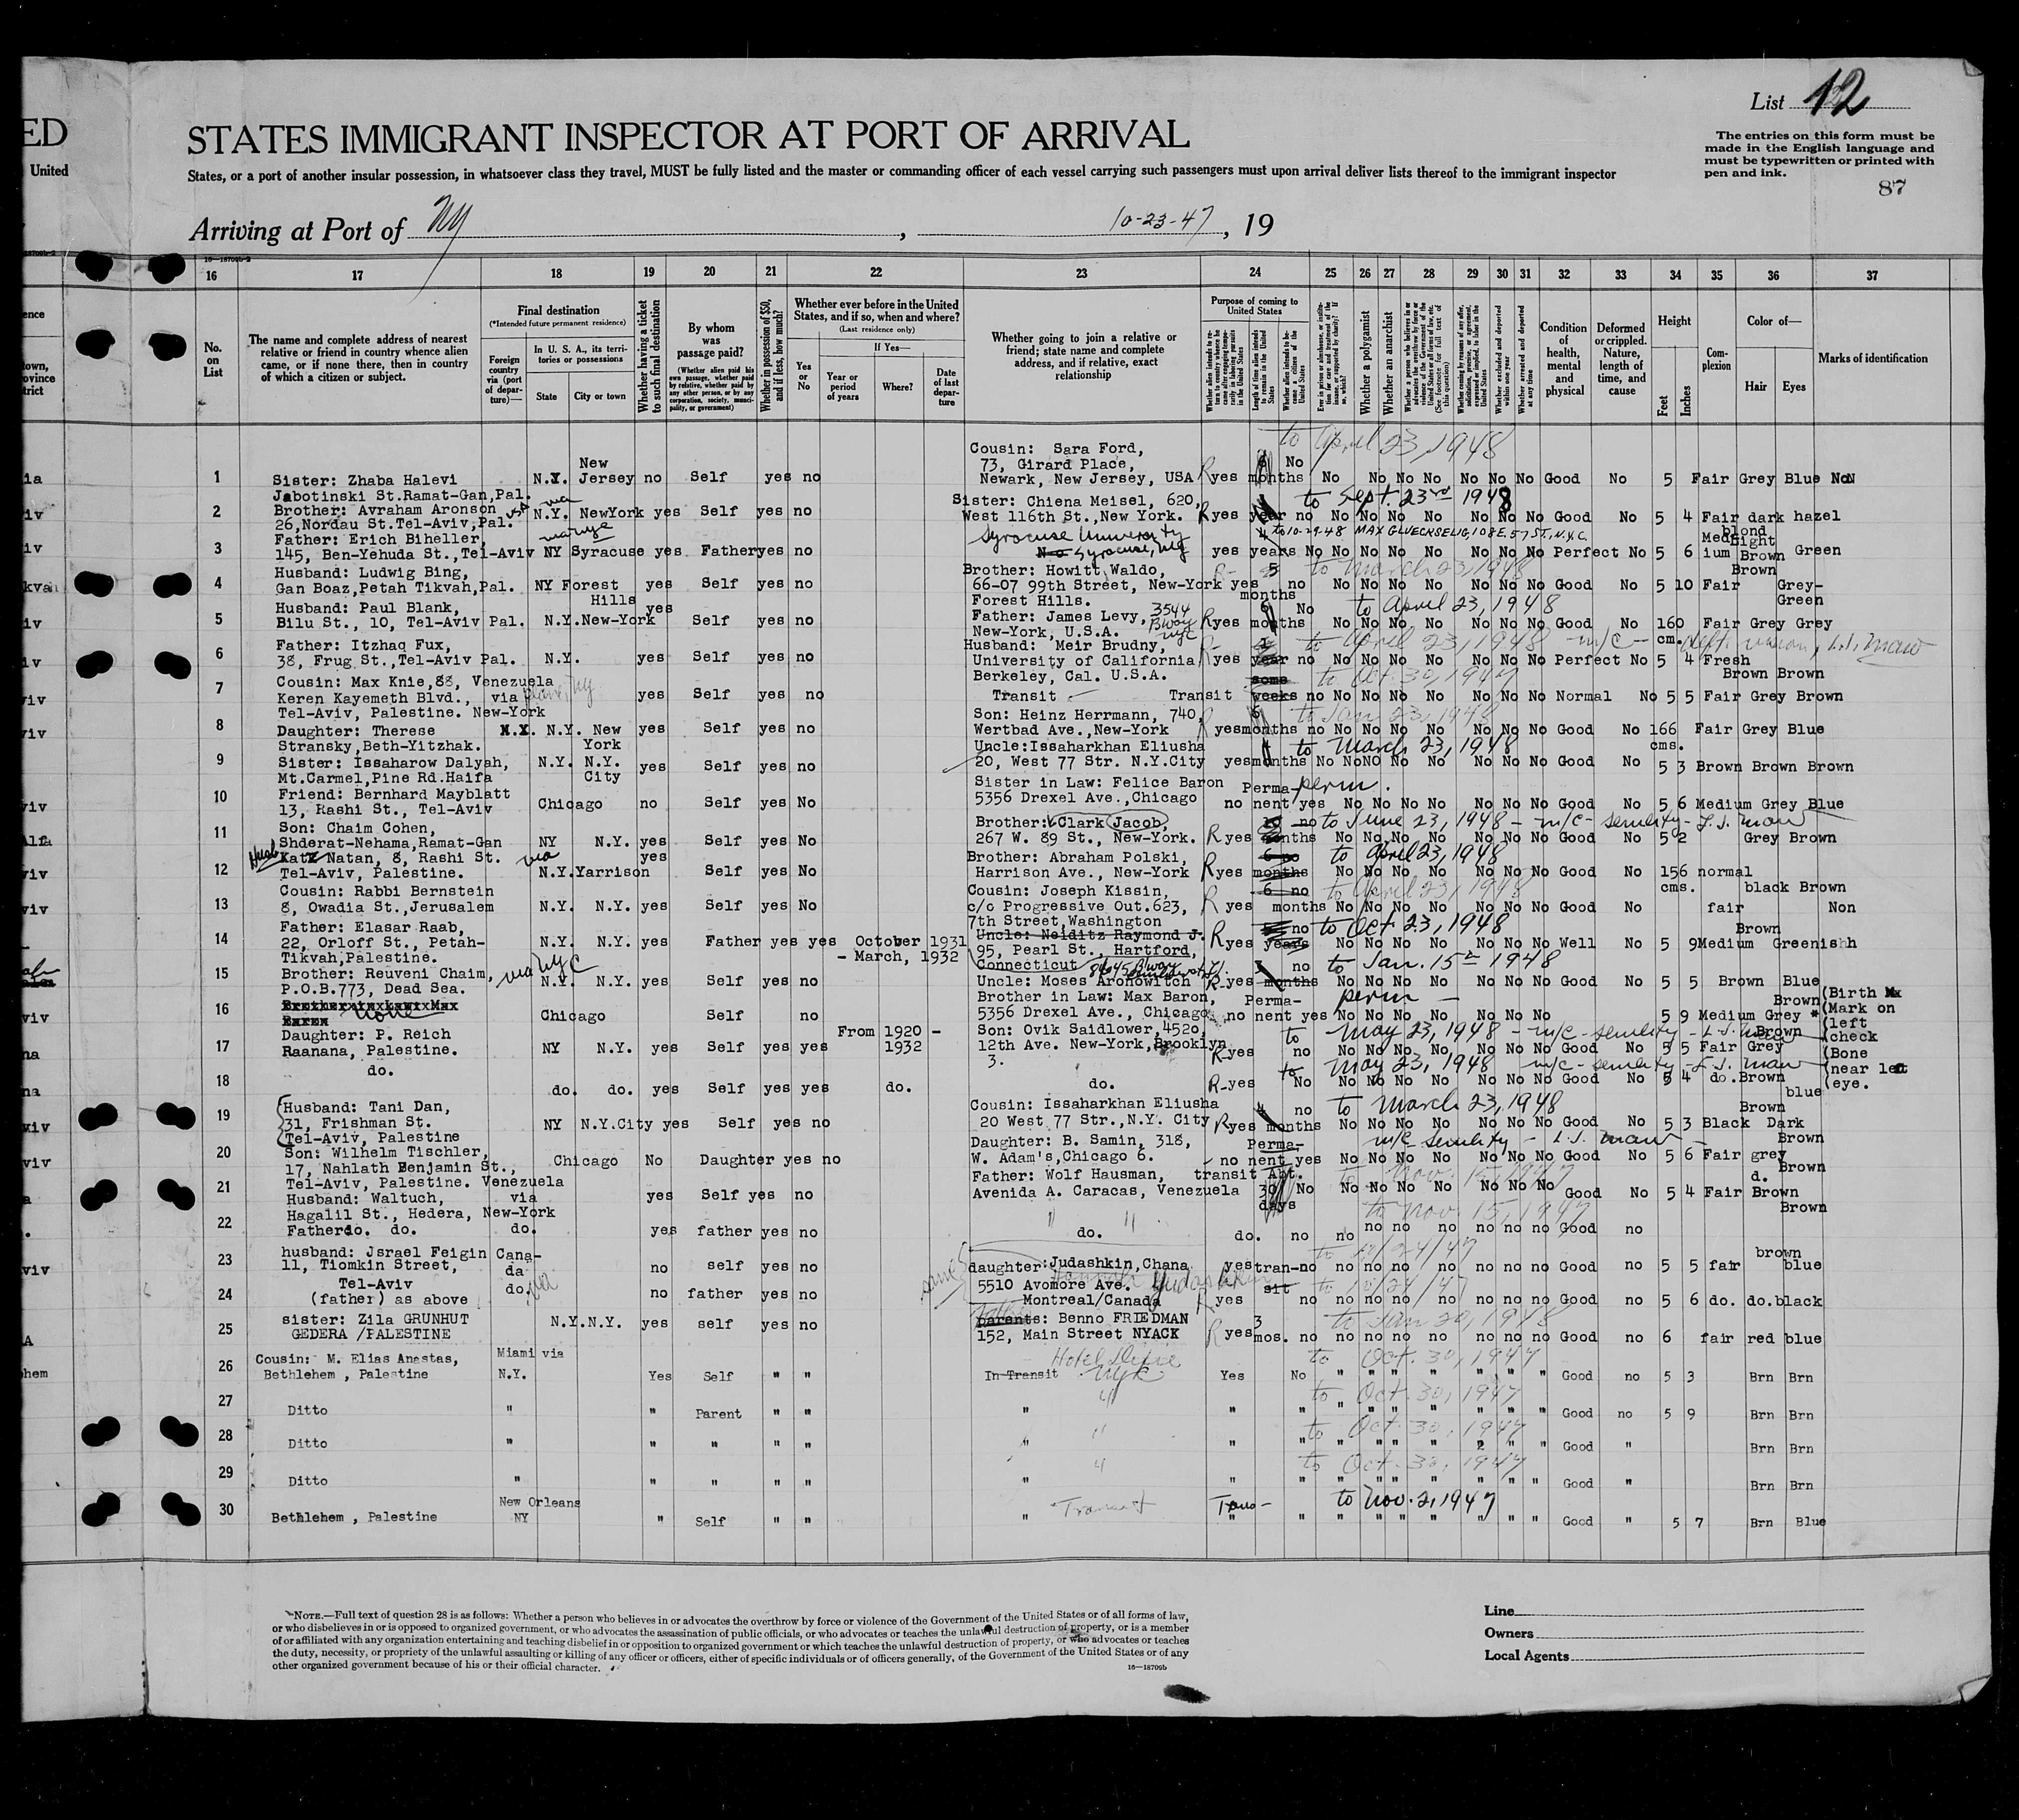 List 12
The entries on this form must be
made in the English language and
must be typewritten or printed with
pen and ink.
87
ED
STATES IMMIGRANT INSPECTOR AT PORT OF ARRIVAL
United
States, or a port of another insular possession, in whatsoever class they travel, MUST be fully listed and the master or commanding officer of each vessel carrying such passengers must upon arrival deliver lists thereof to the immigrant inspector
Arriving at Port of NY , 10-23-47 , 19
16—18709b-2
16 17 18 19 20 21 22 23 24 25 26 27 28 29 30 31 32 33 34 35 36 37
No. on List
The name and complete address of nearest
relative or friend in country whence alien
came, or if none there, then in country
of which a citizen or subject.
Final destination
(*Intended future permanent residence)
Foreign country via (port of departure)—
In U. S. A., its territories or possessions
State
City or town
Whether having a ticket to such final destination
By whom was passage paid?
(Whether alien paid his own passage, whether paid by relative, whether paid by any other person, or by any corporation, society, municipality, or government)
Whether in possession of $50, and if less, how much?
Whether ever before in the United States, and if so, when and where?
(Last residence only)
Yes or No
If Yes—
Year or period of years
Where?
Date of last departure
Whether going to join a relative or
friend; state name and complete
address, and if relative, exact
relationship
Purpose of coming to United States
Whether a polygamist
Whether an anarchist
Whether arrested and deported at any time
Condition of health, mental and physical
Deformed or crippled. Nature, length of time, and cause
Height
Feet
Inches
Complexion
Color of—
Hair
Eyes
Marks of identification
to April 23, 1948
1 Sister: Zhaba Halevi N.Y. New Jersey no Self yes no
Jabotinski St.Ramat-Gan,Pal.
Cousin: Sara Ford,
73, Girard Place,
Newark, New Jersey, USA R yes months No No No No No No No No Good No 5 Fair Grey Blue
2 Brother: Avraham Aronson N.Y. NewYork yes Self yes no
26,Nordau St.Tel-Aviv,Pal.
Sister: Chiena Meisel, 620,
West 116th St.,New York. R yes year no No No No No No No No Good No 5 4 Fair dark hazel
to Sept. 23rd 1948
3 Father: Erich Biheller,
145, Ben-Yehuda St.,Tel-Aviv NY Syracuse yes Father yes no
Syracuse University
Syracuse, NY yes years No No No No No No No Perfect No 5 6 Medium Light Brown Green
to 10-29-48 MAX GLUECKSELIG, 108 E. 57 ST., N.Y.C.
4 Husband: Ludwig Bing,
Gan Boaz,Petah Tikvah,Pal. NY Forest Hills yes Self yes no
Brother: Howitt Waldo,
66-07 99th Street, New-York yes months no No No No No No No No Good No 5 10 Fair Brown Grey-Green
Forest Hills.
to March 23, 1948
5 Husband: Paul Blank,
Bilu St., 10, Tel-Aviv Pal. N.Y. New-York yes Self yes no
Father: James Levy, 3544 Bway NYC
New-York, U.S.A. R yes months No No No No No No No No Good No 160 cm. Fair Grey Grey
to April 23, 1948
6 Father: Itzhaq Fux,
38, Frug St.,Tel-Aviv Pal. N.Y. yes Self yes no
Husband: Meir Brudny,
University of California R yes year no No No No No No No No Perfect No 5 4 Fresh Brown Brown
Berkeley, Cal. U.S.A.
to April 23, 1948 - m/c -
7 Cousin: Max Knie,88, Venezuela
Keren Kayemeth Blvd., via yes Self yes no
Tel-Aviv, Palestine. New-York
Transit Transit some weeks no No No No No No No No Normal No 5 5 Fair Grey Brown
to Oct 30, 1947
8 Daughter: Therese N.Y. New York yes Self yes no
Stransky,Beth-Yitzhak.
Son: Heinz Herrmann, 740,
Wertbad Ave.,New-York R yes 6 months no No No No No No No No Good No 166 cms. Fair Grey Blue
to Jan 23, 1948
9 Sister: Issaharow Dalyah, N.Y. N.Y. City yes Self yes no
Mt.Carmel,Pine Rd.Haifa
Uncle:Issaharkhan Eliusha
20, West 77 Str. N.Y.City yes months No No No No No No No No Good No 5 3 Brown Brown Brown
to March 23, 1948
10 Friend: Bernhard Mayblatt Chicago no Self yes No
13, Rashi St., Tel-Aviv
Sister in Law: Felice Baron
5356 Drexel Ave.,Chicago no Permanent yes No No No No No No No Good No 5 6 Medium Grey Blue
perm.
11 Son: Chaim Cohen,
Shderat-Nehama,Ramat-Gan NY N.Y. yes Self yes No
Brother: Clark Jacob,
267 W. 89 St., New-York. R yes months no No No No No No No No Good No 5 2 Grey Brown
to June 23, 1948 - m/c - senility -
12 Katz Natan, 8, Rashi St. via
Tel-Aviv, Palestine. N.Y. Yarrison yes Self yes No
Brother: Abraham Polski,
Harrison Ave., New-York R yes 6 months no No No No No No No No Good No 156 cms. normal black Brown
to April 23, 1948
13 Cousin: Rabbi Bernstein
8, Owadia St.,Jerusalem N.Y. N.Y. yes Self yes No
Cousin: Joseph Kissin,
c/o Progressive Out.623, R yes 6 months no No No No No No No No Good No fair Non
7th Street,Washington
to April 23, 1948
14 Father: Elasar Raab,
22, Orloff St., Petah- N.Y. N.Y. yes Father yes yes October 1931
Tikvah,Palestine. - March, 1932
Uncle: Neiditz Raymond J.
95, Pearl St., Hartford, R yes years no No No No No No No No Well No 5 9 Medium Brown Greenish
Connecticut
to Oct 23, 1948
15 Brother: Reuveni Chaim, via NYC
P.O.B.773, Dead Sea. N.Y. N.Y. yes Self yes no
Uncle: Moses Aronowitch R yes months no No No No No No No No Good No 5 5 Brown Blue
to Jan. 15th 1948
16 none Chicago Self no
Brother in Law: Max Baron,
5356 Drexel Ave., Chicago. no Permanent yes No No No No No No No 5 9 Medium Grey Brown
perm -
(Birth
(Mark on
(left
(check
(Bone
(near left
(eye.
17 Daughter: P. Reich
Raanana, Palestine. NY N.Y. yes Self yes yes From 1920 - 1932
Son: Ovik Saidlower,4520,
12th Ave. New-York,Brooklyn R yes no No No No No No No No Good No 5 5 Fair Grey Brown
3.
to May 23, 1948 - m/c - senility -
18 do. do. do. yes Self yes yes do.
do. R yes No No No No No No No No Good No 5 4 do. Brown blue
to May 23, 1948 m/c - senility -
19 Husband: Tani Dan,
31, Frishman St. NY N.Y.City yes Self yes no
Tel-Aviv, Palestine
Cousin: Issaharkhan Eliusha
20 West 77 Str.,N.Y. City R yes months no No No No No No No No Good No 5 3 Black Brown Dark
to March 23, 1948
20 Son: Wilhelm Tischler, Chicago No Daughter yes no
17, Nahlath Benjamin St.,
Tel-Aviv, Palestine.
Daughter: B. Samin, 318,
W. Adam's,Chicago 6. no Permanent yes No No No No No No No Good No 5 6 Fair grey Brown
m/c senility -
21 Husband: Waltuch, Venezuela via New-York yes Self yes no
Hagalil St., Hedera,
Father: Wolf Hausman, transit Abt.
Avenida A. Caracas, Venezuela 30 days No No No No No No No No Good No 5 4 Fair d. Brown Brown
to Nov. 15, 1947
22 Father do. do. do. yes father yes no
do. do. no no no no no no no no Good no Brown
to Nov 15, 1947
23 husband: Jsrael Feigin Canada no self yes no
11, Tiomkin Street,
Tel-Aviv
daughter:Judashkin,Chana yes transit no no no no no no no no Good no 5 5 fair brown blue
5510 Avomore Ave.
Montreal/Canada
to 10/24/47
24 (father) as above do. no father yes no
R yes no no no no no no no no Good no 5 6 do. do. black
to 10/24/47
25 sister: Zila GRUNHUT N.Y. N.Y. yes self yes no
GEDERA /PALESTINE
parents: Benno FRIEDMAN
152, Main Street NYACK R yes 3 mos. no no no no no no no no Good no 6 fair red blue
to Jan 20, 1948
26 Cousin: M. Elias Anastas, Miami via
Bethlehem , Palestine N.Y. Yes Self " "
Hotel Dixie NYC
In Transit Yes No " " " " " " " Good no 5 3 Brn Brn
to Oct. 30, 1947
27 Ditto " " Parent " " " " " " " " " " " " Good no 5 9 Brn Brn
to Oct. 30, 1947
28 Ditto " " " " " " " " " " " " " " Good " Brn Brn
to Oct. 30, 1947
29 Ditto " " " " " " " " " " " " " " Good " Brn Brn
to Oct. 30, 1947
30 Bethlehem , Palestine New Orleans NY " Self " " " Transit Trans- " " " " " " " " Good " 5 7 Brn Blue
to Nov. 2, 1947
NOTE.—Full text of question 28 is as follows: Whether a person who believes in or advocates the overthrow by force or violence of the Government of the United States or of all forms of law,
or who disbelieves in or is opposed to organized government, or who advocates the assassination of public officials, or who advocates or teaches the unlawful destruction of property, or is a member
of or affiliated with any organization entertaining and teaching disbelief in or opposition to organized government or which teaches the unlawful destruction of property, or who advocates or teaches
the duty, necessity, or propriety of the unlawful assaulting or killing of any officer or officers, either of specific individuals or of officers generally, of the Government of the United States or of any
other organized government because of his or their official character.
16—18709b
Line
Owners
Local Agents